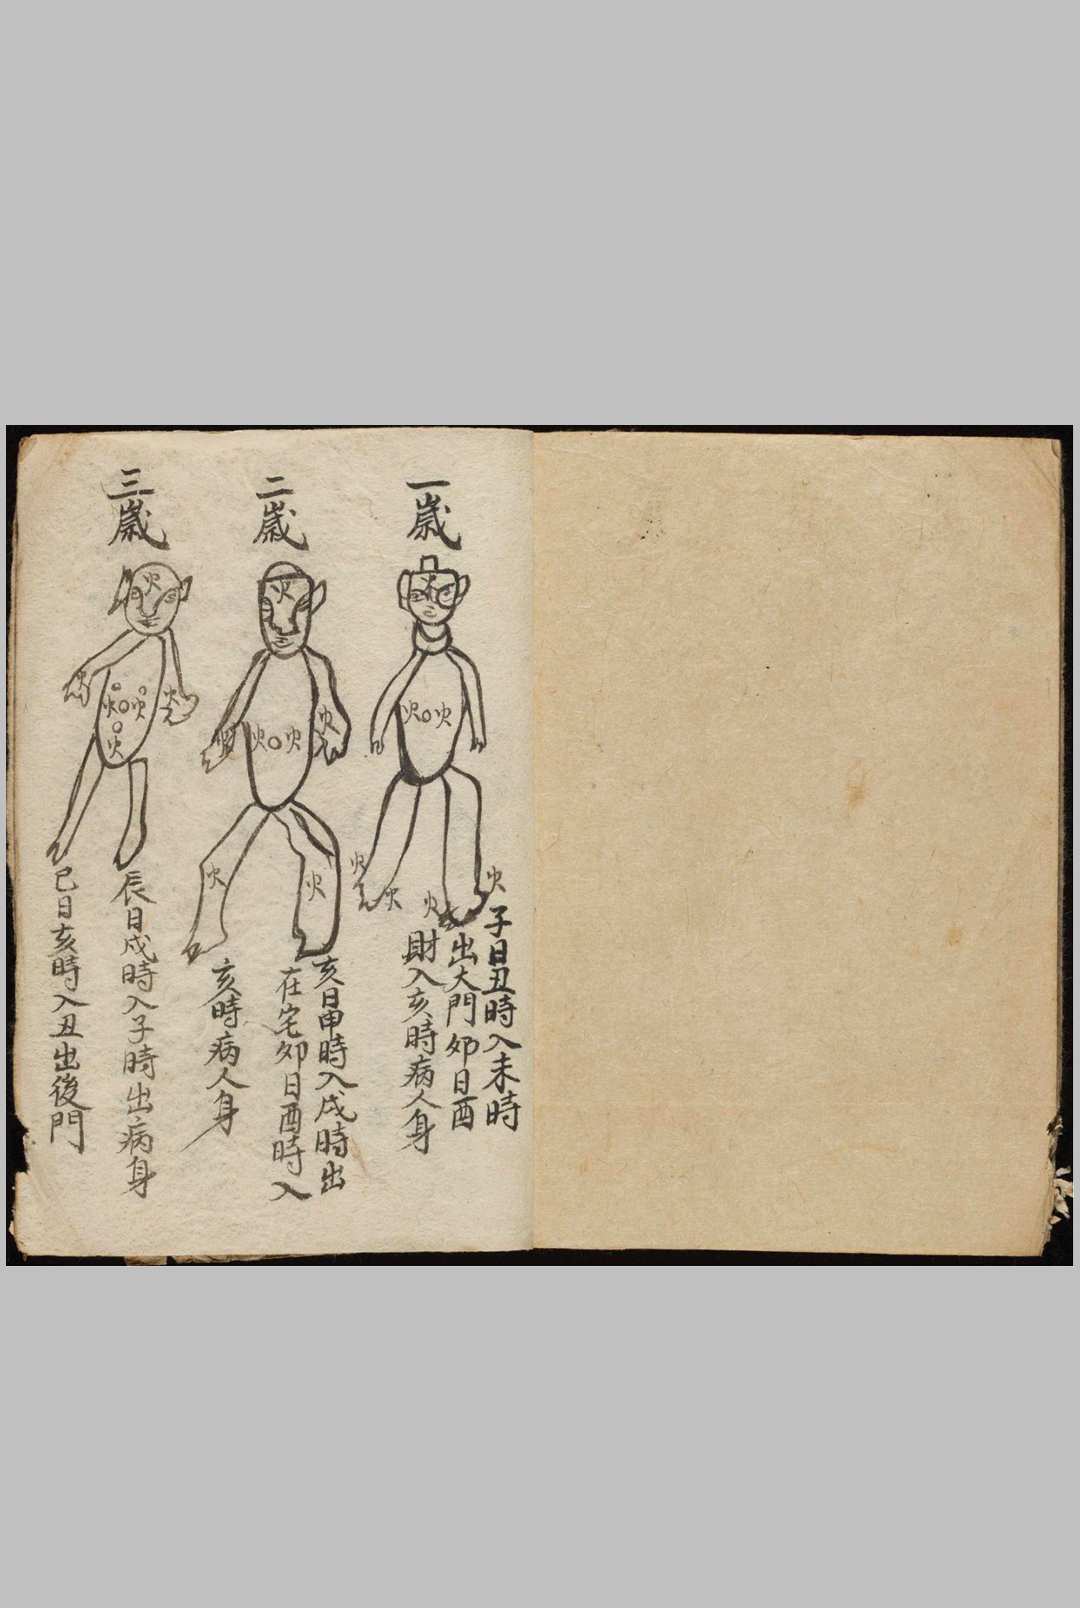 一歲
火
火火
火
火
火
火
子日丑時入未時
出大門卯日酉
財入亥時病人身
二歲
火
火火
火
火
火
火
亥日申時入戌時出
在宅卯日酉時入
亥時病人身
三歲
火
火火
火
火
火
辰日戌時入子時出病身
巳日亥時入丑出後門